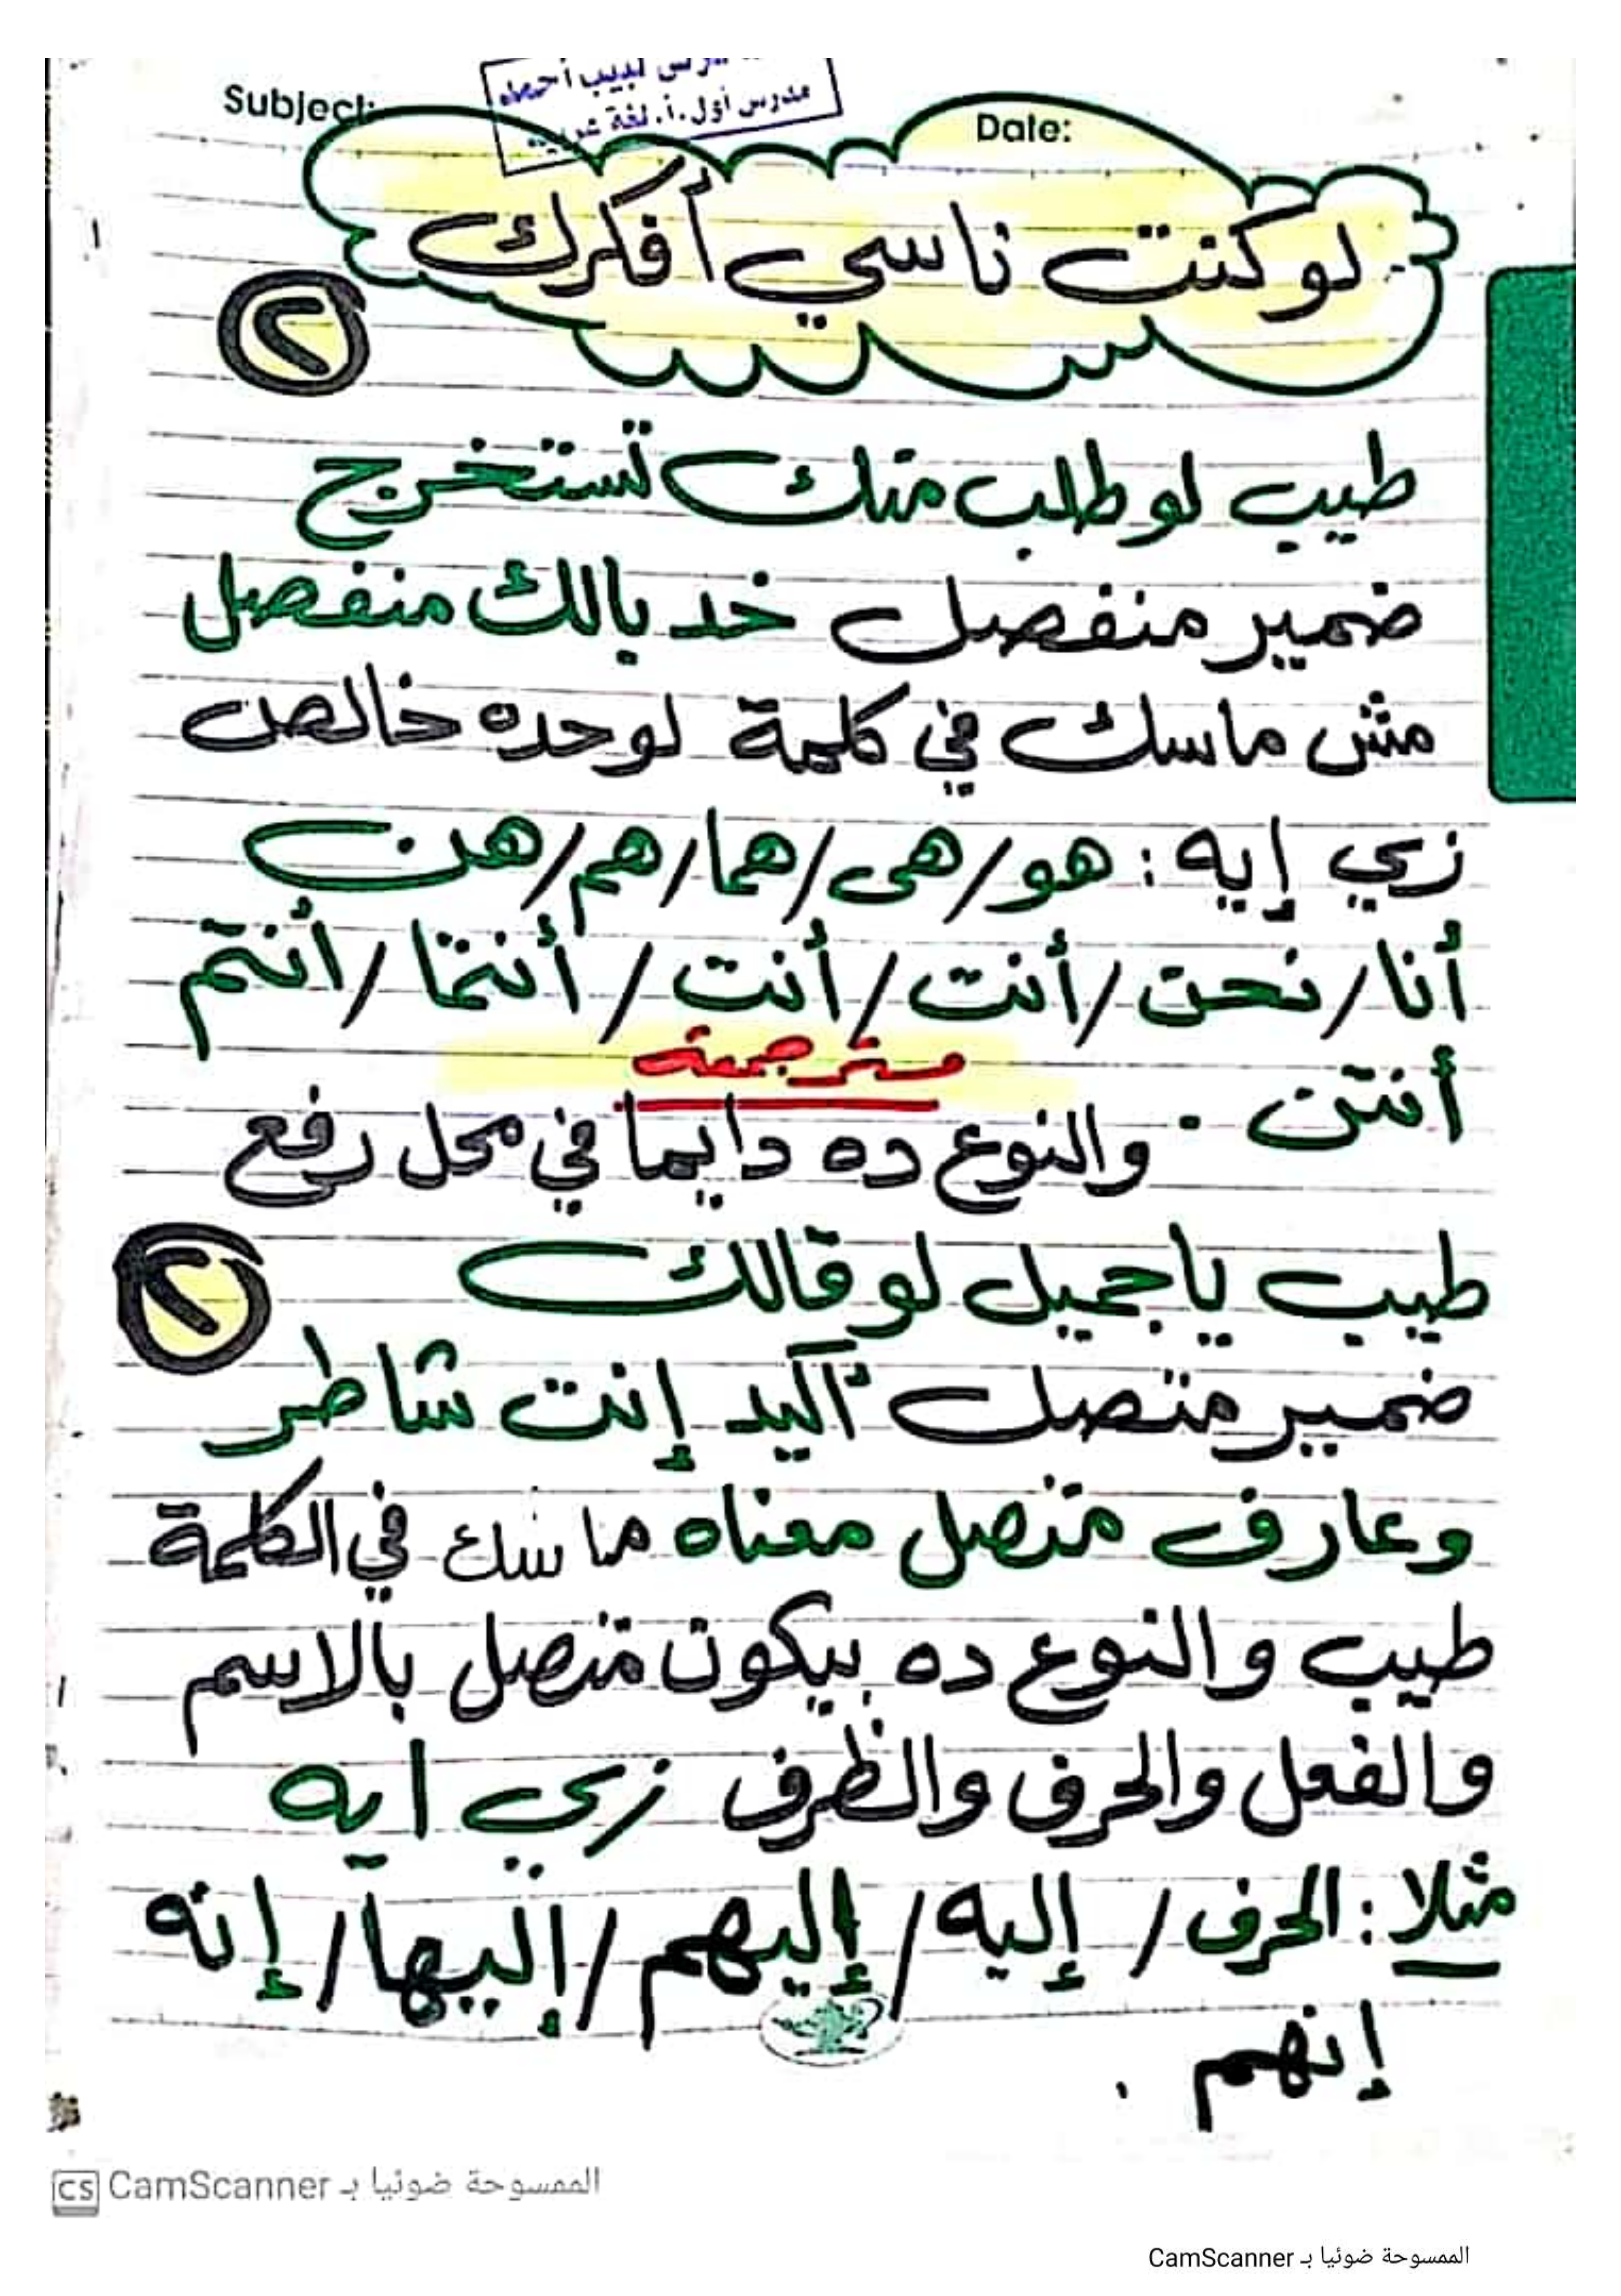 Subject:
مدرس أول.أ. لغة عربية
Date:
لو كنت ناسي أفكرك
٢
طيب لو طلب منك تستخرج
ضمير منفصل خد بالك منفصل
مش ماسك في كلمة لوحده خالص
زي إيه : هو/هى/هما/هم/هن
أنا/نحن/أنت/أنت/أنتما/أنتم
أنتن .
والنوع ده دايما في محل رفع
٢
طيب ياجميل لو قالك
ضمير متصل أكيد إنت شاطر
وعارف متصل معناه ماسك في الكلمة
طيب والنوع ده بيكون متصل بالاسم
والفعل والحرف والظرف زي ايه
مثلا : الحرف / إليه / إليهم / إليها / إنه
إنهم .
CS CamScanner الممسوحة ضوئيا بـ
الممسوحة ضوئيا بـ CamScanner